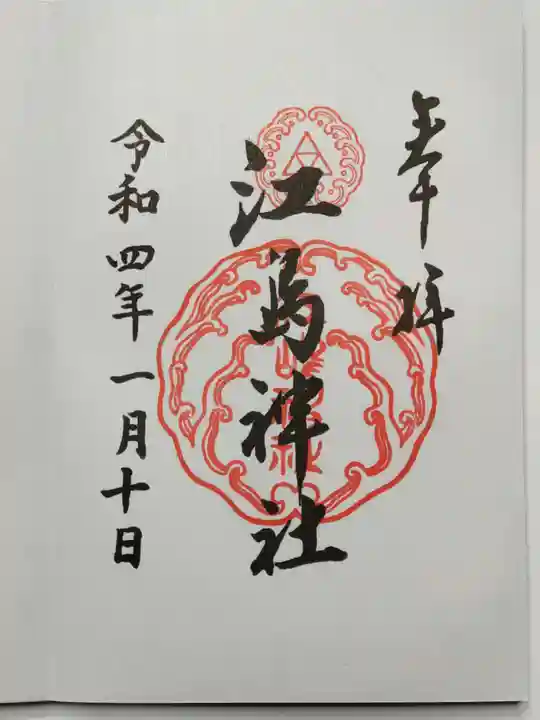 奉拝
江島神社
令和四年一月十日